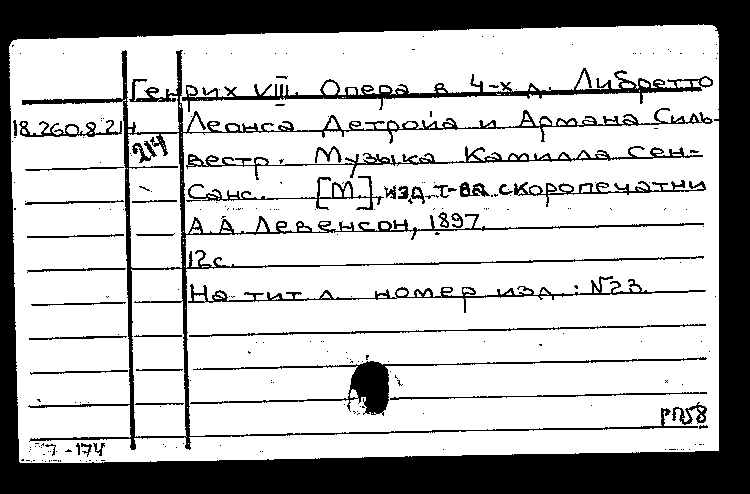 Генрих VIII. Опера в 4-х д. Либретто
18.260.8.214 Леонса Детройа и Армана Силь-
214 вестр. Музыка Камилла Сен-
Санс. [М.], изд. т-ва скоропечатни
А.А. Левенсон, 1897.
12с.
На тит л. номер изд: №23.
РП58
-174